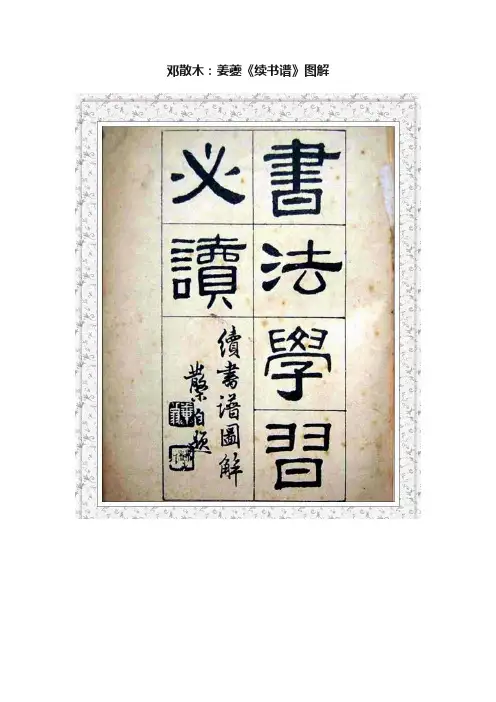 邓散木：姜夔《续书谱》图解
書法學習
必讀
續書譜圖解
散木自題